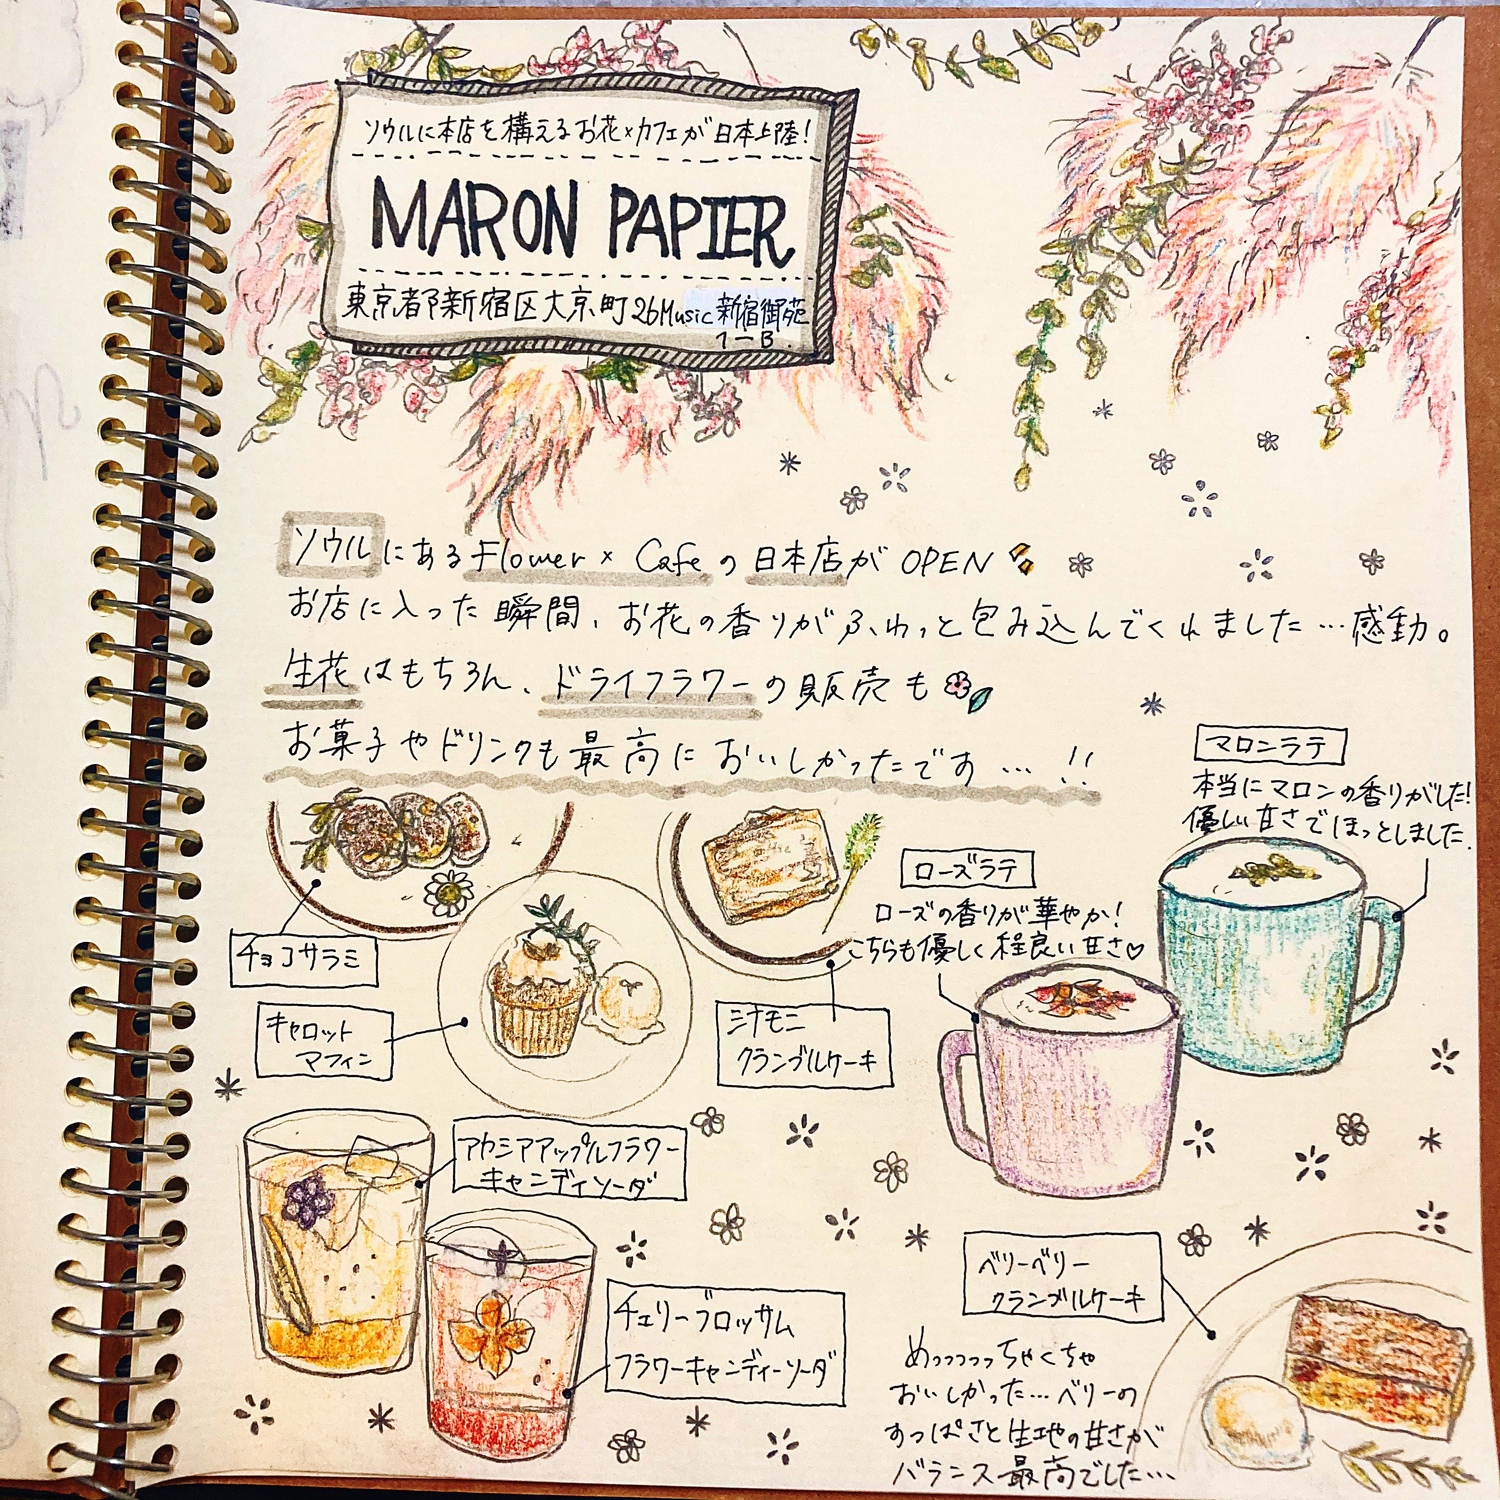 ソウルに本店を構えるお花×カフェが日本上陸!
MARON PAPIER
東京都新宿区大京町26Music新宿御苑
1-B
ソウルにあるFlower×Cafeの日本店がOPEN
お店に入った瞬間、お花の香りがふわっと包み込んでくれました…感動。
生花はもちろん、ドライフラワーの販売も
お菓子やドリンクも最高においしかったです…!!
マロンラテ
本当にマロンの香りがした!
優しい甘さでほっとしました.
ローズラテ
ローズの香りが華やか!
こちらも優しく程良い甘さ♡
チョコサラミ
キャロット
マフィン
シナモン
クランブルケーキ
アカシアアップルフラワー
キャンディソーダ
チェリーブロッサム
フラワーキャンディーソーダ
ベリーベリー
クランブルケーキ
めっっっっっちゃくちゃ
おいしかった…ベリーの
すっぱさと生地の甘さが
バランス最高でした…